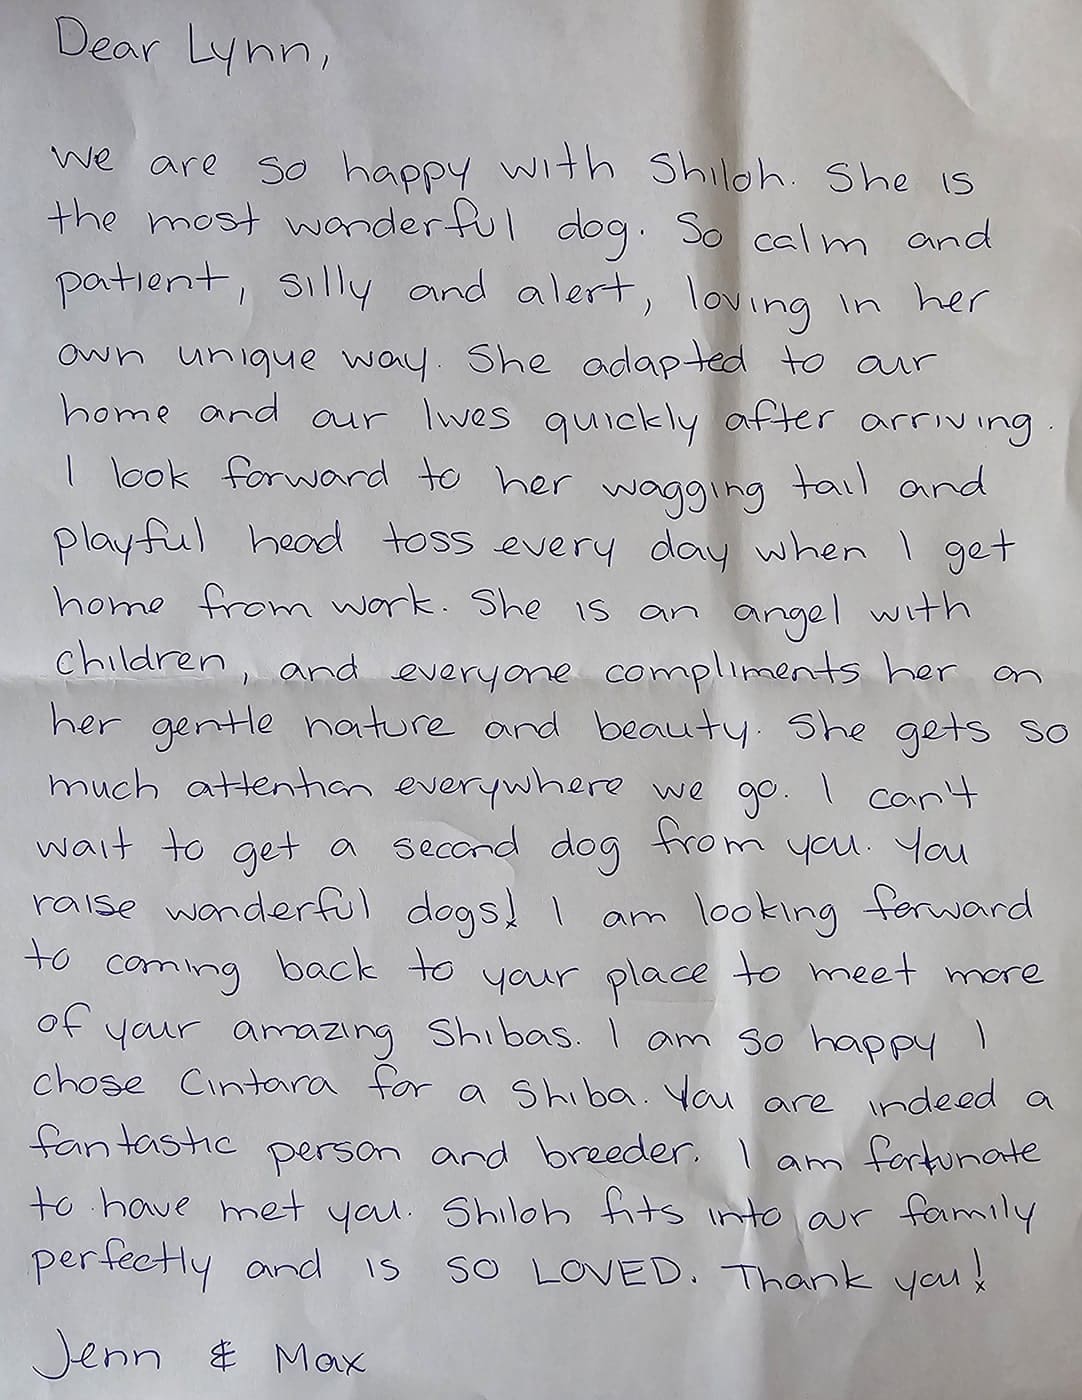 Dear Lynn,
We are so happy with Shiloh. She is
the most wonderful dog. So calm and
patient, silly and alert, loving in her
own unique way. She adapted to our
home and our lives quickly after arriving.
I look forward to her wagging tail and
playful head toss every day when I get
home from work. She is an angel with
children, and everyone compliments her on
her gentle nature and beauty. She gets so
much attention everywhere we go. I can't
wait to get a second dog from you. You
raise wonderful dogs! I am looking forward
to coming back to your place to meet more
of your amazing Shibas. I am so happy I
chose Cintara for a Shiba. You are indeed a
fantastic person and breeder. I am fortunate
to have met you. Shiloh fits into our family
perfectly and is SO LOVED. Thank you!
Jenn & Max